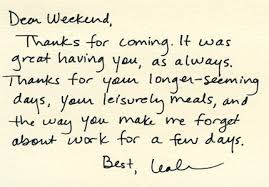 Dear Weekend,
Thanks for coming. It was
great having you, as always.
Thanks for your longer-seeming
days, your leisurely meals, and
the way you make me forget
about work for a few days.
Best,